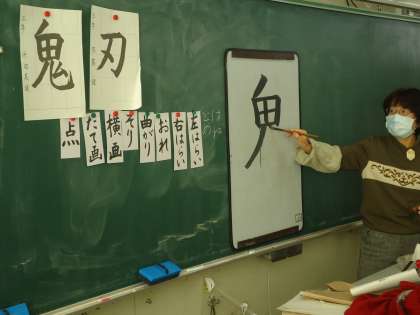 刃
鬼
左はらい
右はらい
おれ
曲がり
そり
横画
たて画
点